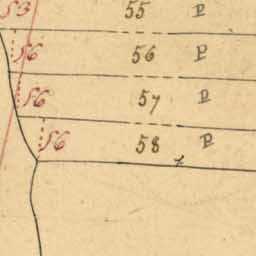 53 55 P
56 56 P
56 57 P
56 58 P